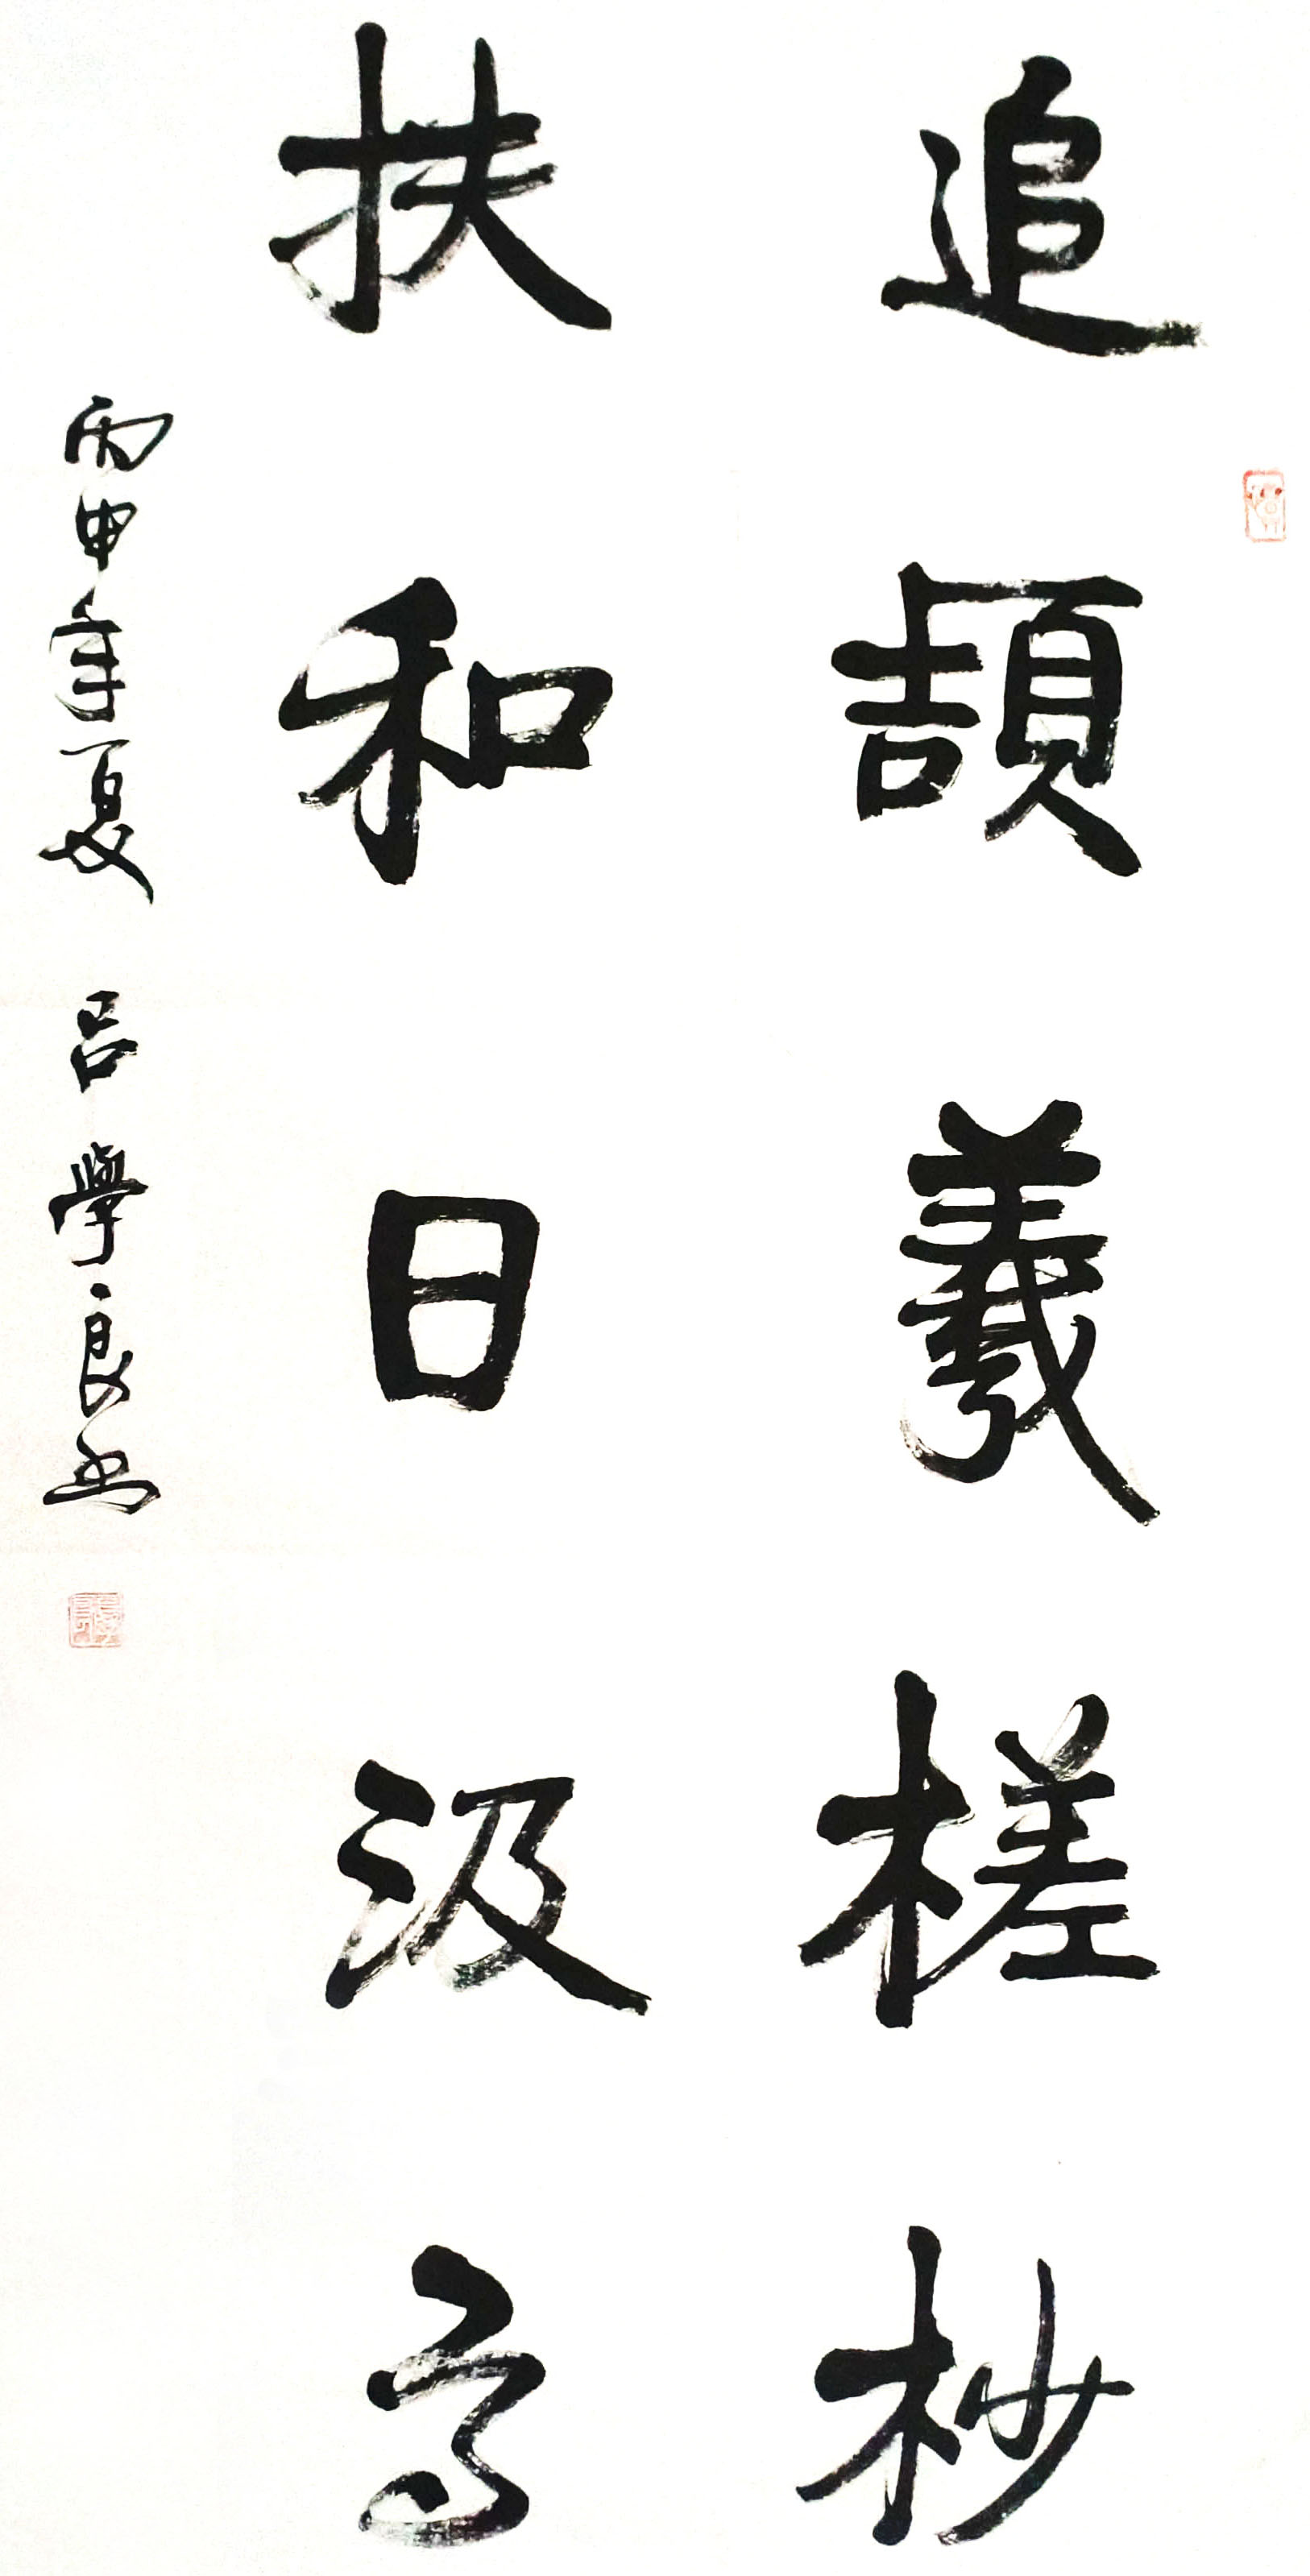 追頡羲槎杪
扶和日汲高
丙申年夏 呂學良书